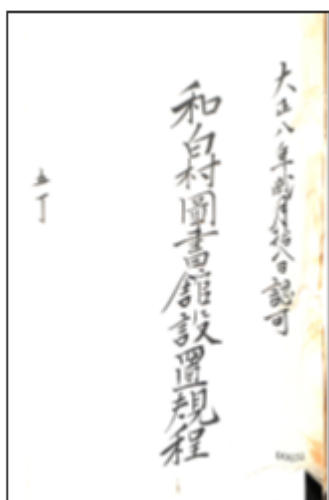 大正八年貮月拾八日認可
和白村圖書館設置規程
五丁